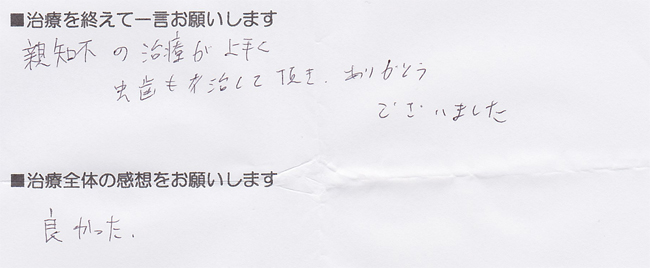 ■治療を終えて一言お願いします
親知不の治療が上手く
虫歯も治して頂き、ありがとう
ございました
■治療全体の感想をお願いします
良かった.